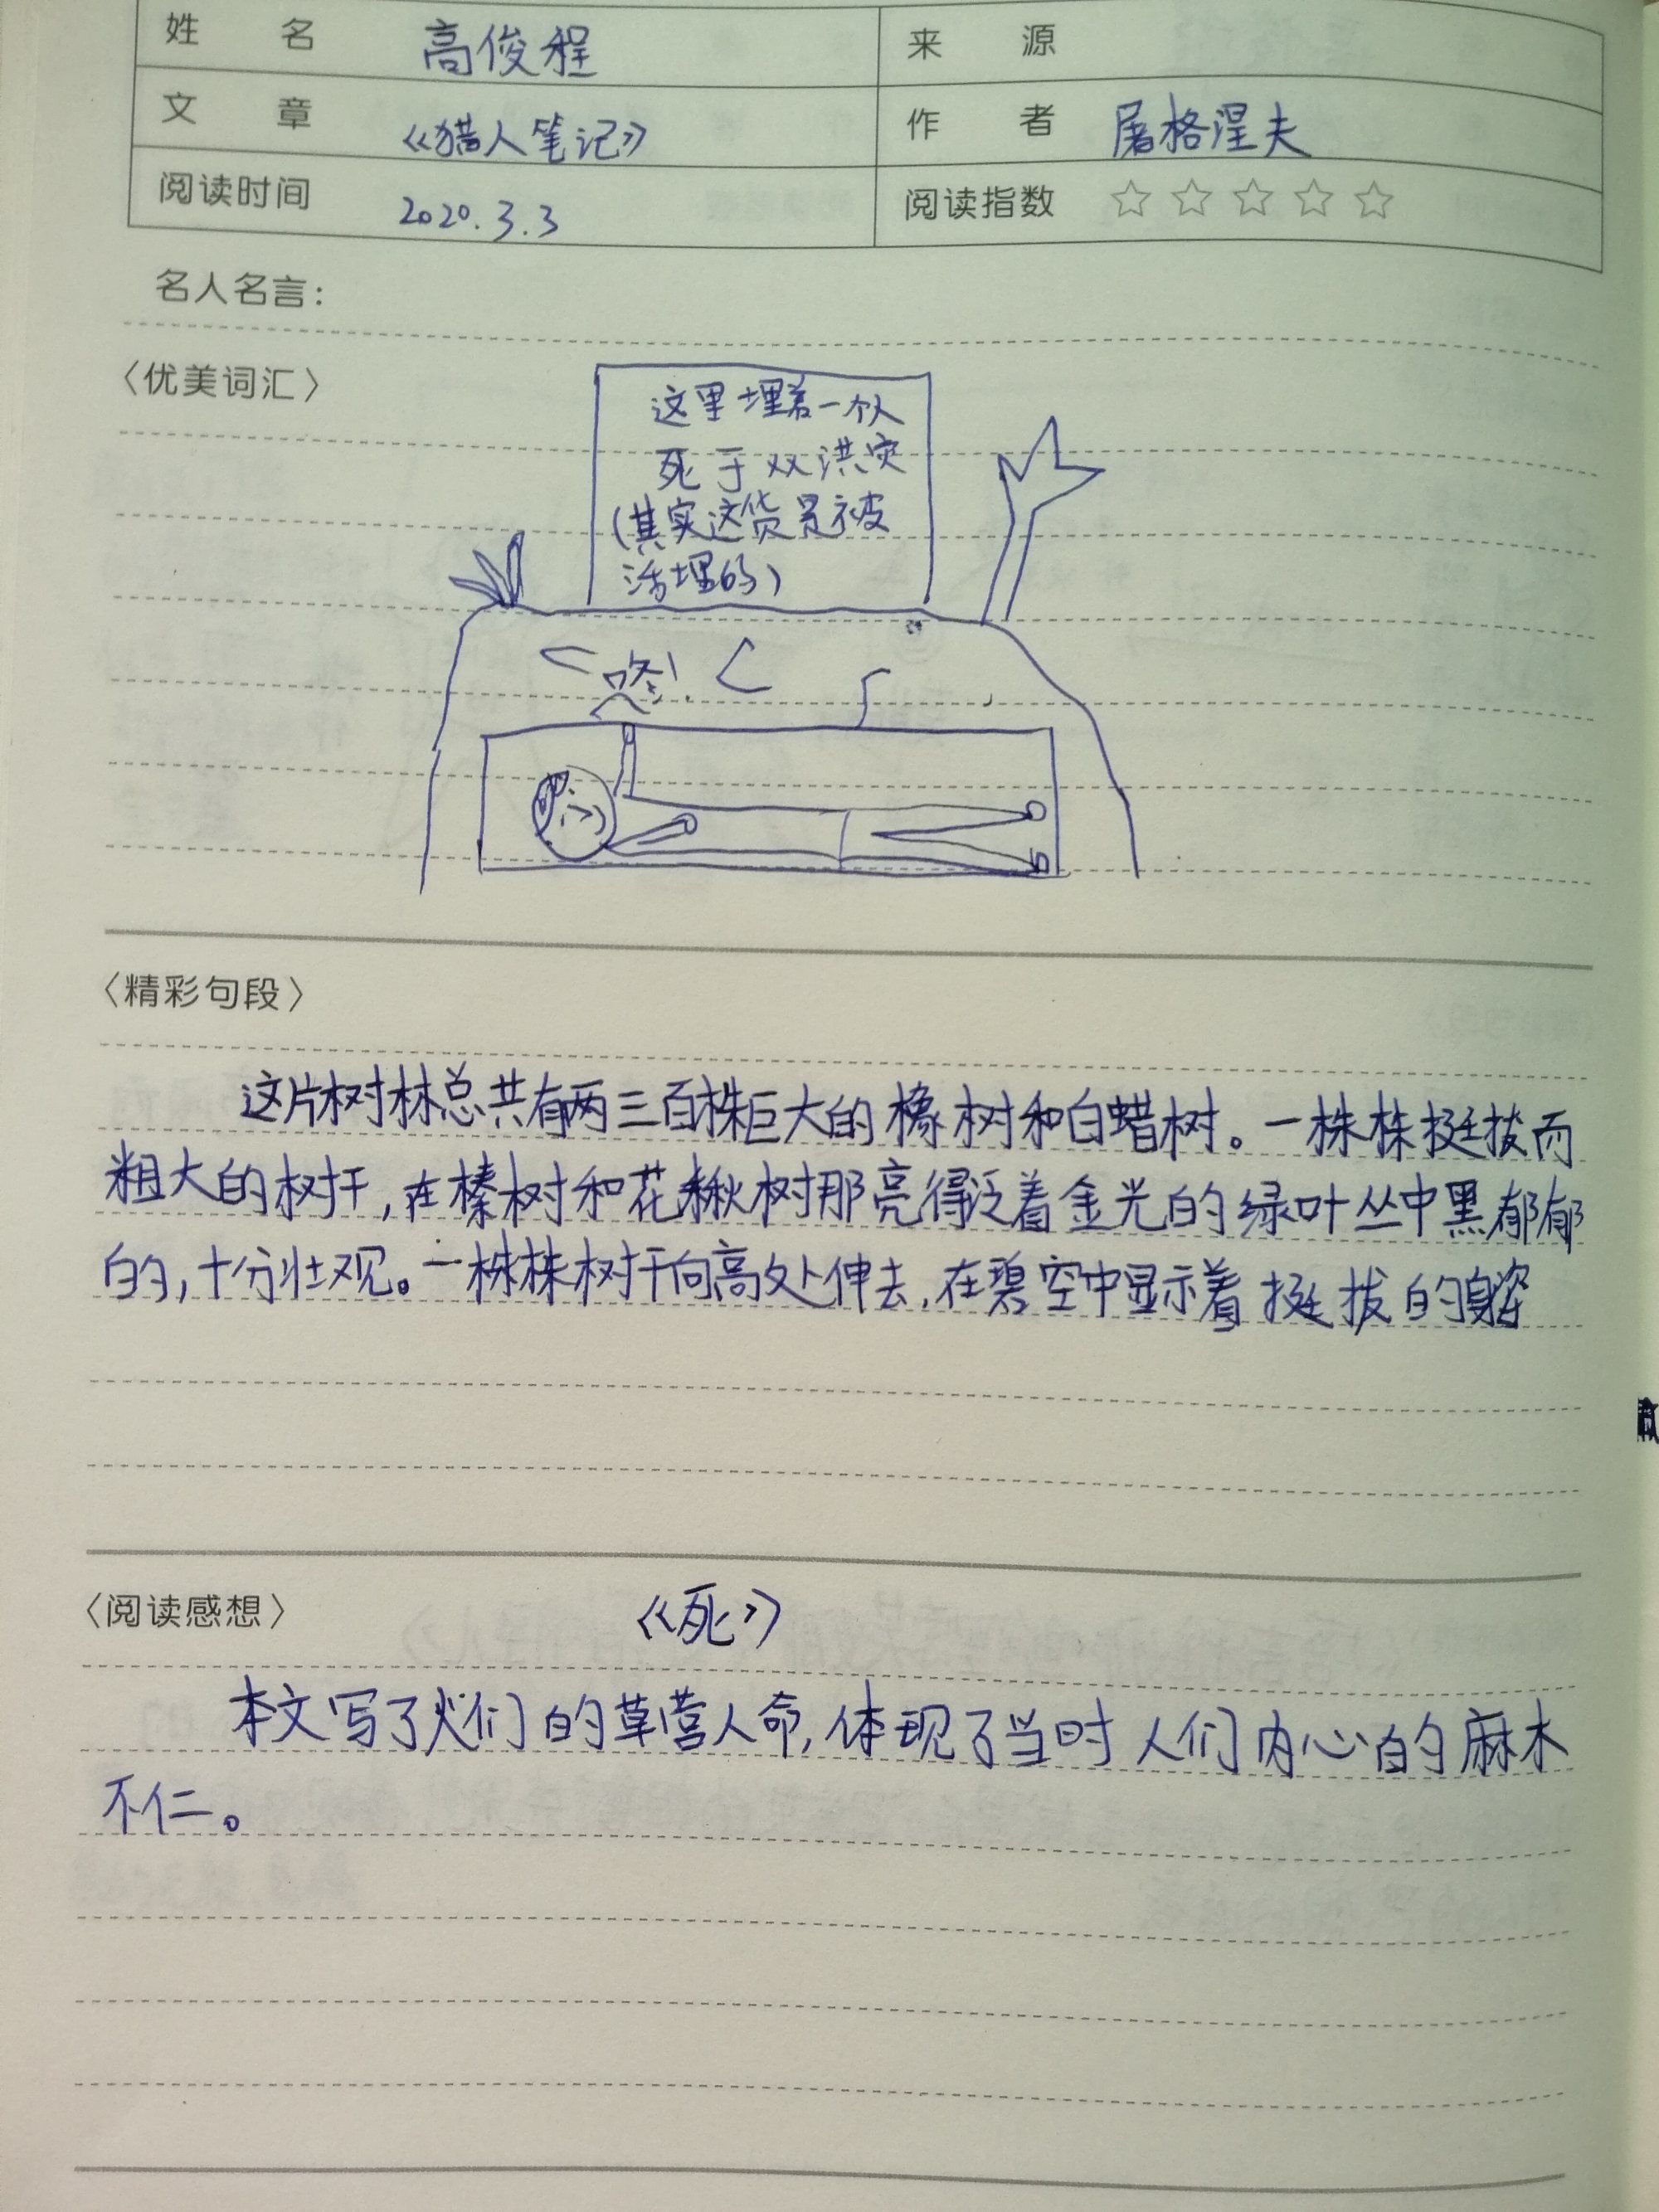 姓 名 高俊程 来 源
文 章 《猎人笔记》 作 者 屠格涅夫
阅读时间 2020.3.3 阅读指数 ☆☆☆☆☆
名人名言：
〈优美词汇〉
这里埋着一个人
死于双洪灾
(其实这货是被
活埋的)
咚!
〈精彩句段〉
这片树林总共有两三百株巨大的橡树和白蜡树。一株株挺拔而
粗大的树干,在榛树和花楸树那亮得泛着金光的绿叶丛中黑郁郁
的,十分壮观。一株株树干向高处伸去,在碧空中显示着挺拔的身姿
〈阅读感想〉 《死》
本文写了人们的草营人命,体现了当时人们内心的麻木
不仁。